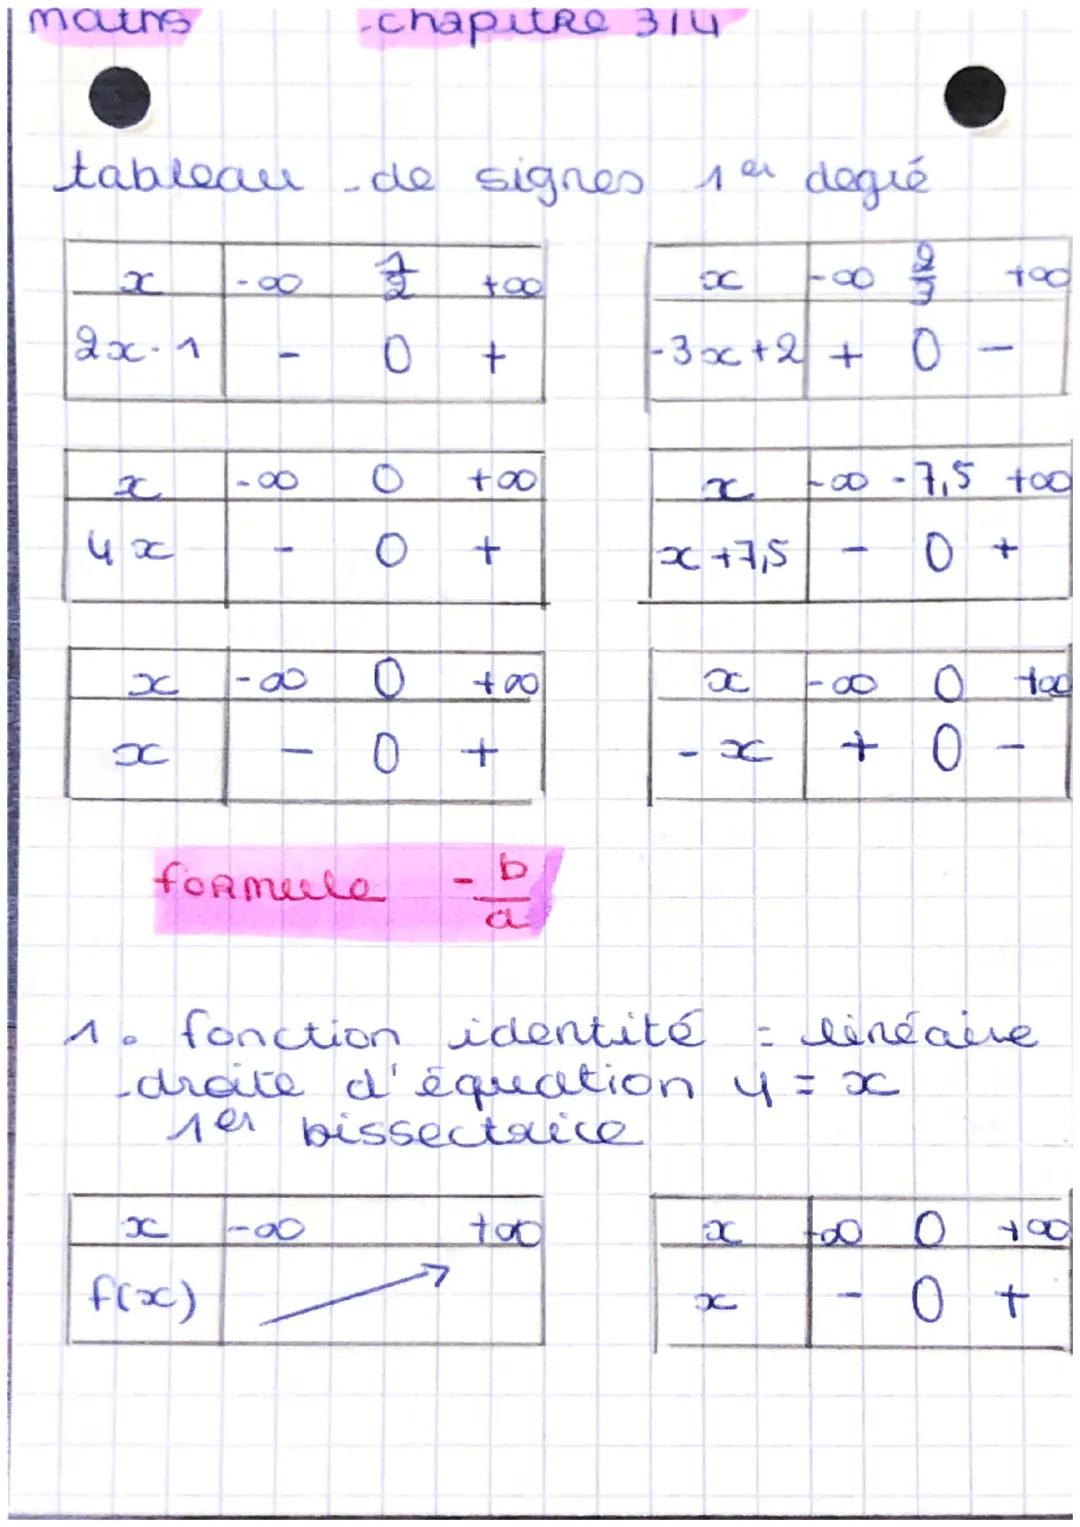 maths chapitre 3/4
tableau de signes 1er degré
x -∞ 1/2 +∞
2x-1 - 0 +
x -∞ 2/3 +∞
-3x+2 + 0 -
x -∞ 0 +∞
4x - 0 +
x -∞ -7,5 +∞
x+7,5 - 0 +
x -∞ 0 +∞
x - 0 +
x -∞ 0 +∞
-x + 0 -
formule -b/a
1. fonction identité = linéaire
droite d'équation y = x
1er bissectrice
x -∞ +∞
f(x)
x -∞ 0 +∞
x - 0 +